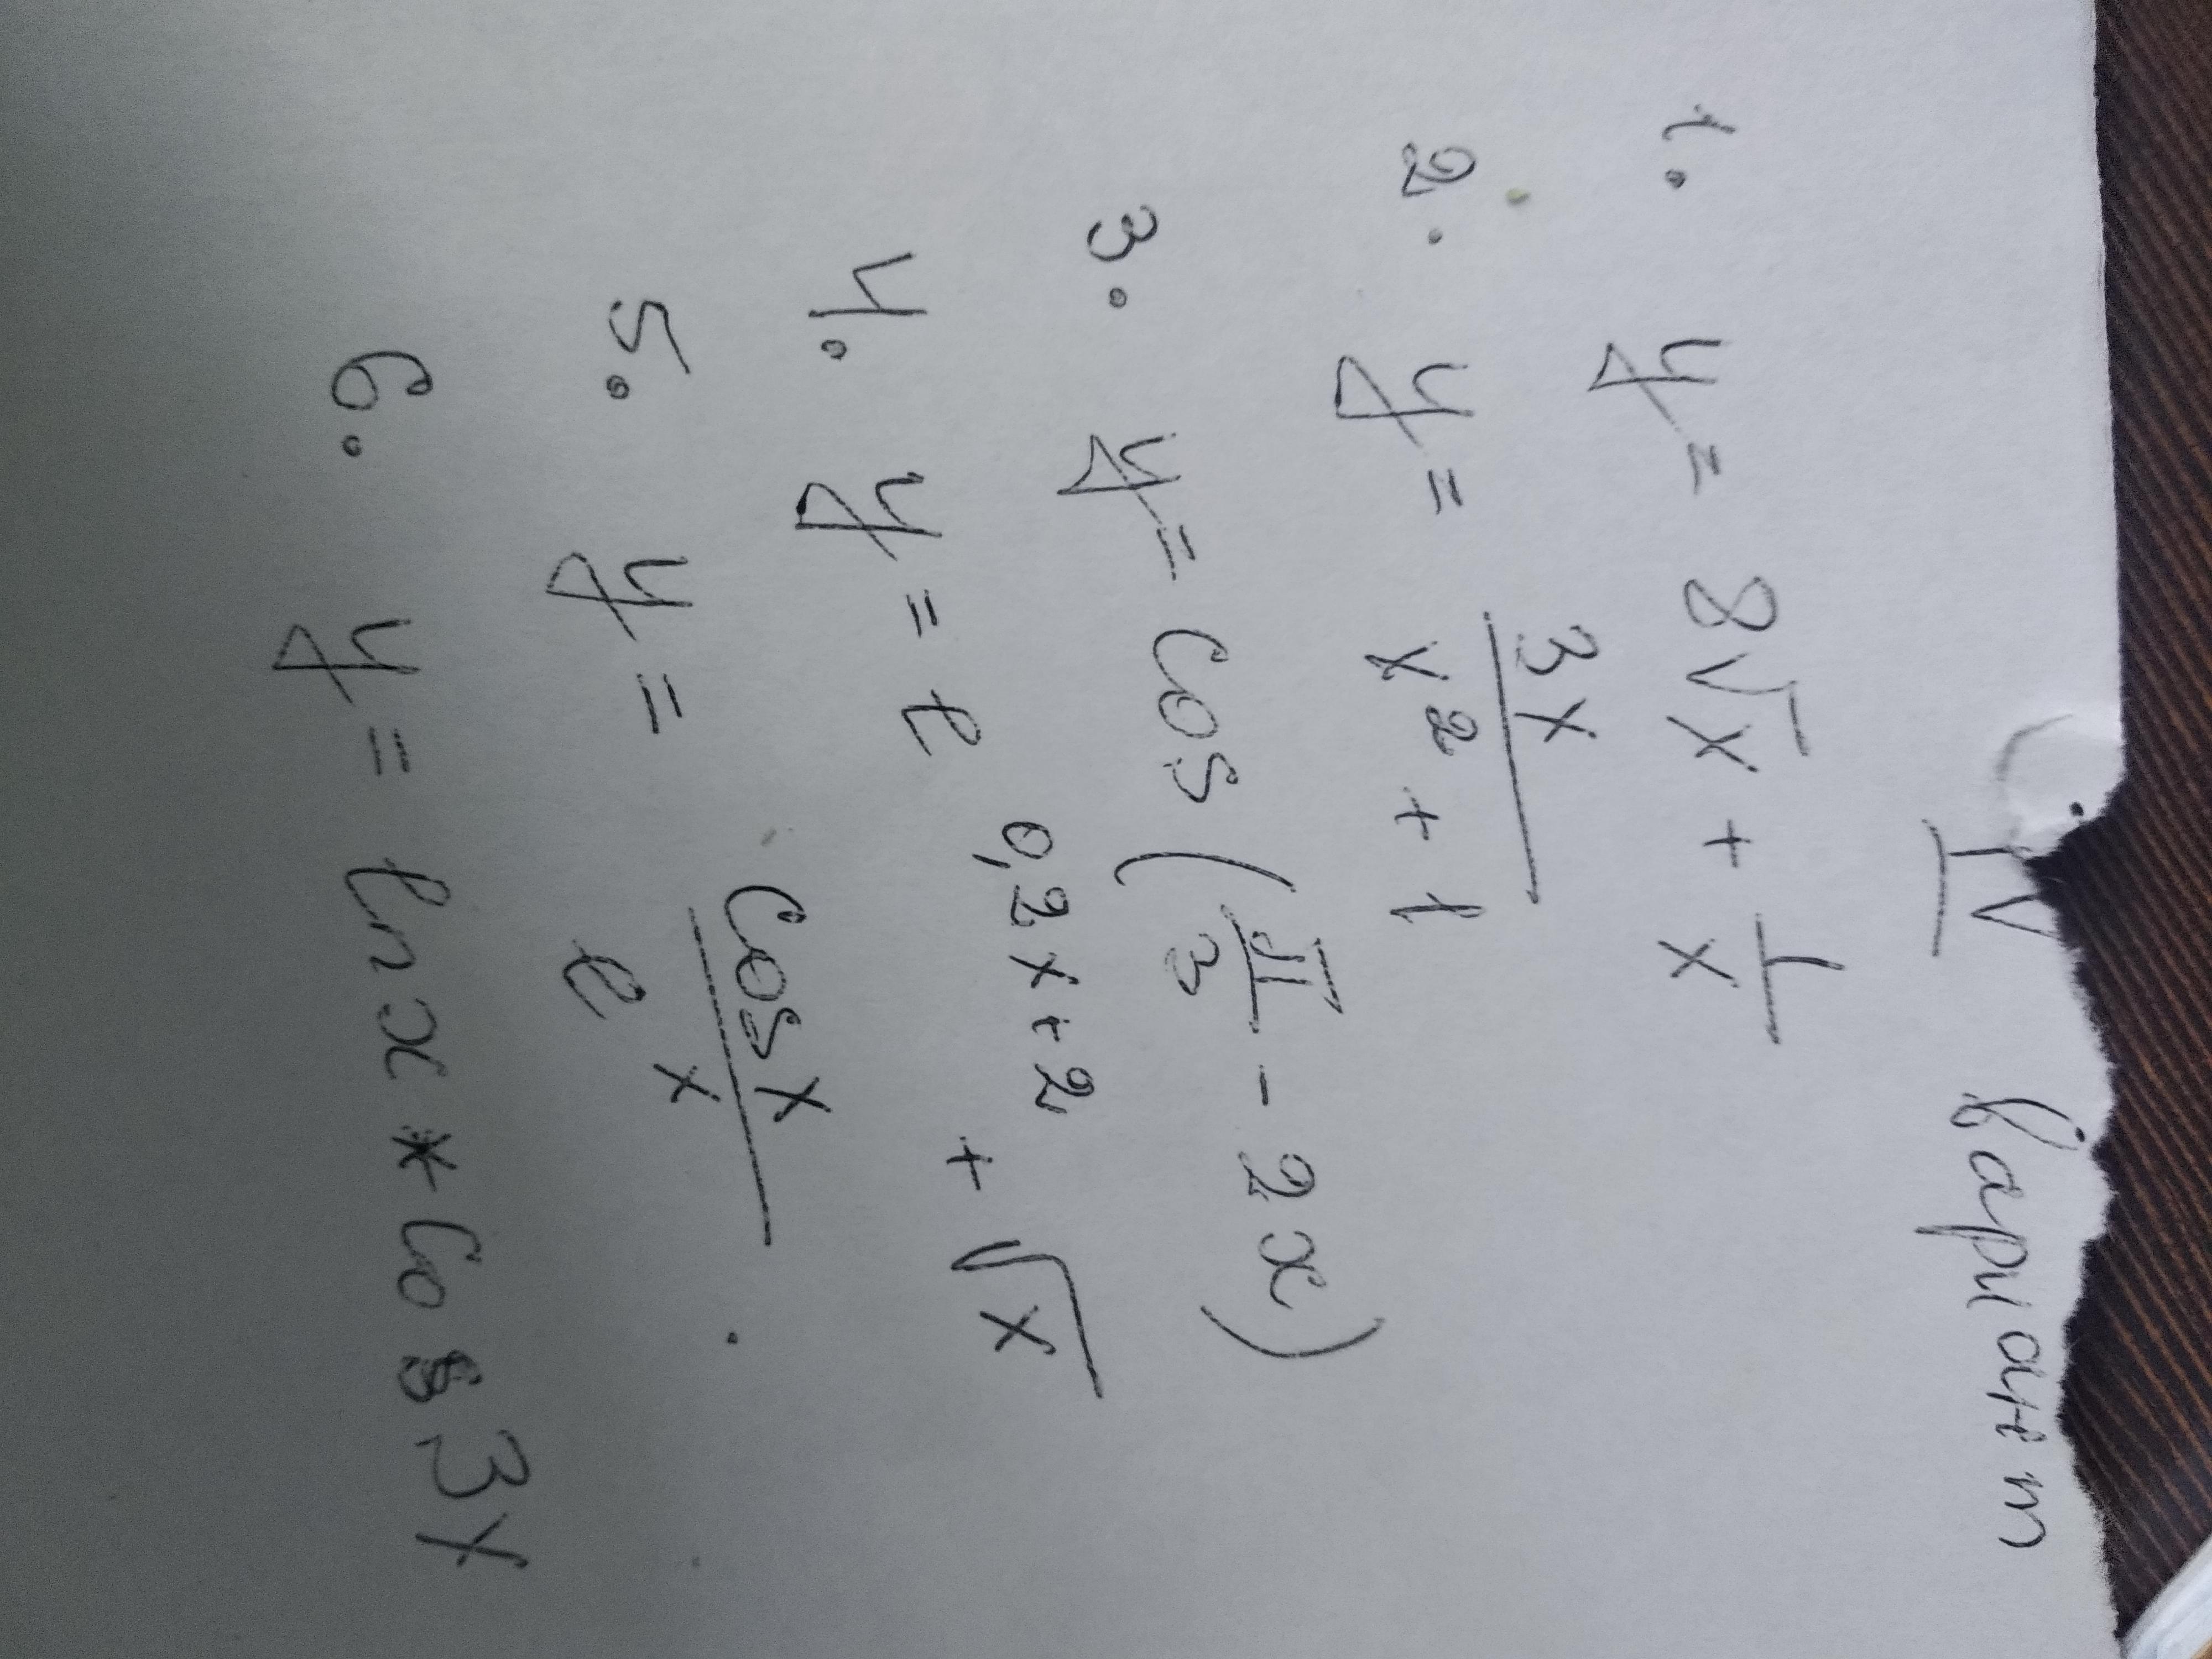 IV варіант
1. y = 8√x + 1/x
2. y = 3x/x² + 1
3. y = cos(π/3 - 2x)
4. y = e^0,2x+2 + √x
5. y = cosx/e^x
6. y = lnx * cos3x